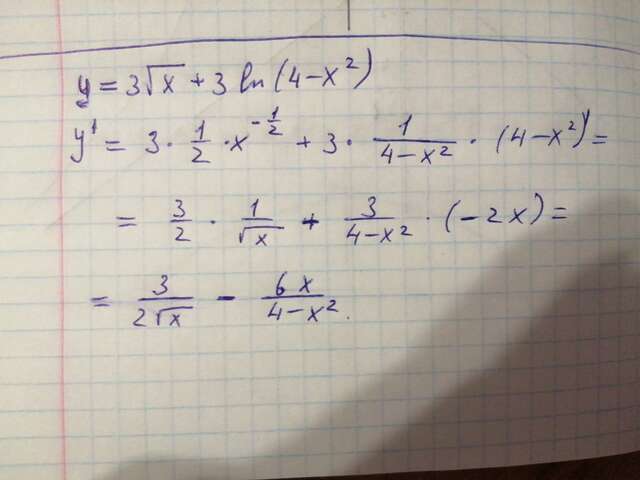 y = 3√x + 3 ln(4 − x²)
y' = 3 · 1/2 · x^(−1/2) + 3 · 1/(4 − x²) · (4 − x²)' =
= 3/2 · 1/√x + 3/(4 − x²) · (−2x) =
= 3/(2√x) − 6x/(4 − x²).